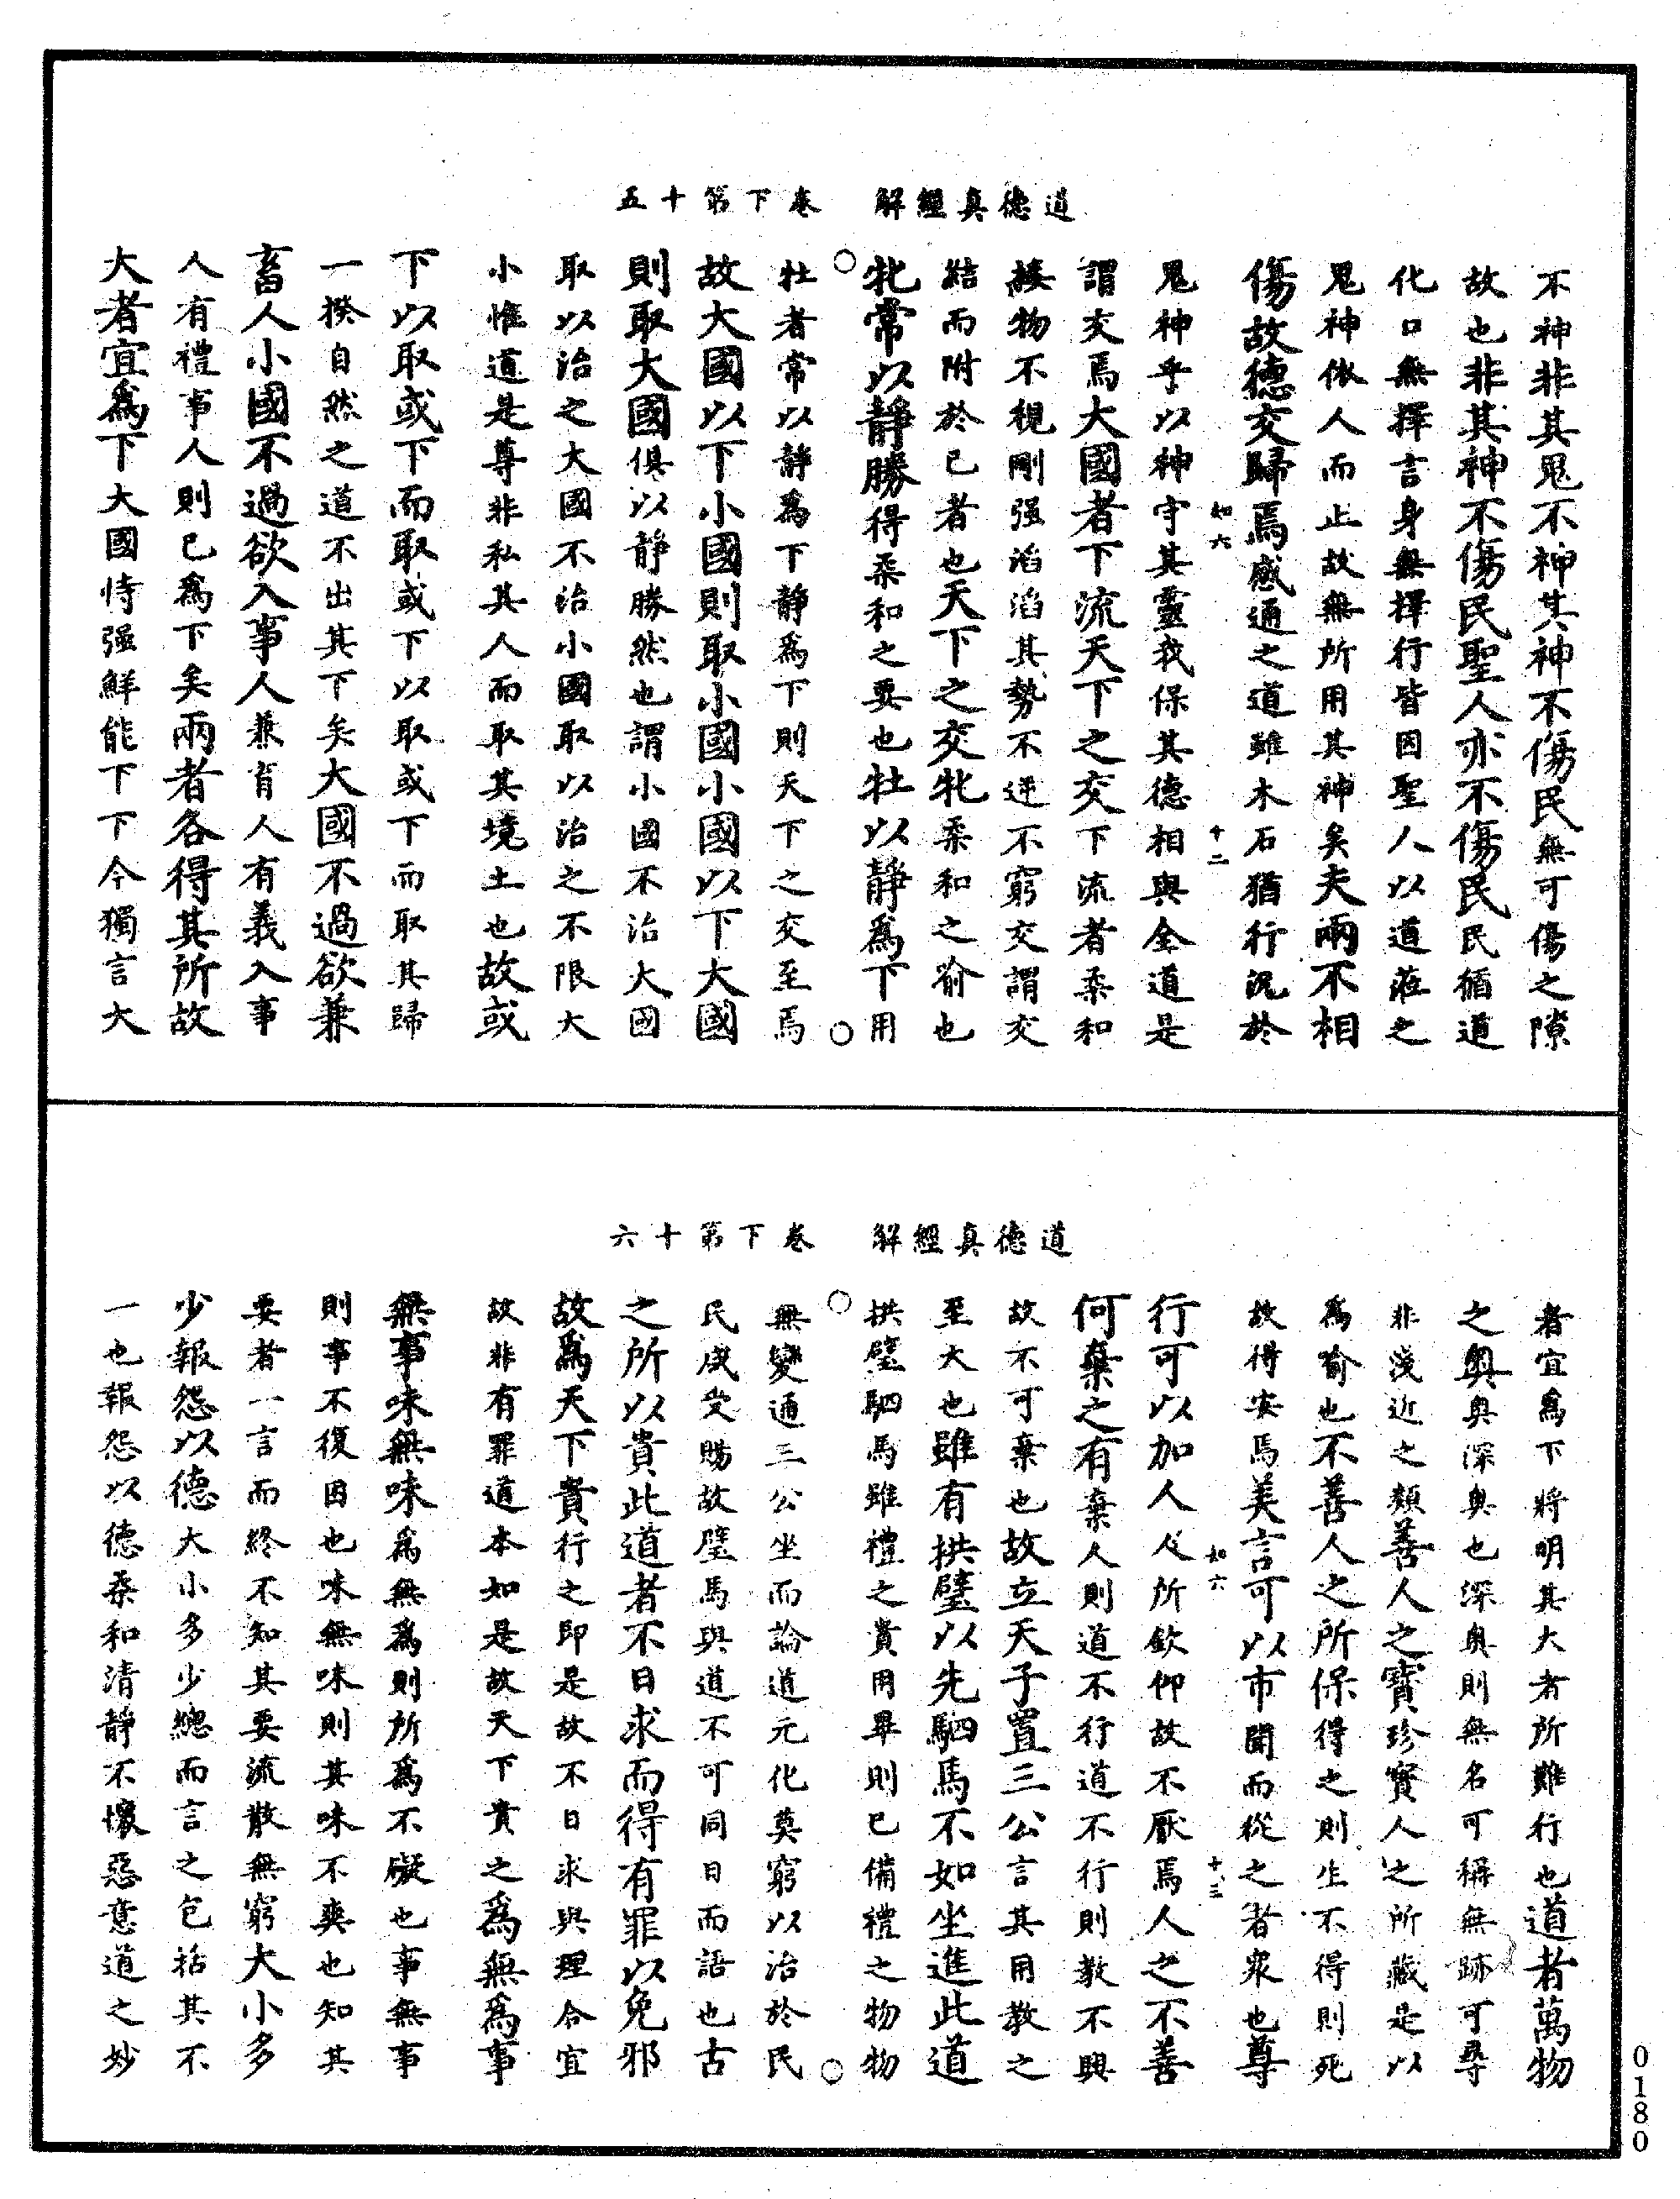 道德真經解　卷下第十五
不神非其鬼不神其神不傷民無可傷之隙
故也非其神不傷民聖人亦不傷民民循道
化口無擇言身無擇行皆因聖人以道莅之
鬼神依人而止故無所用其神矣夫兩不相
傷故德交歸焉感通之道雖木石猶行況於
如六　十二
鬼神乎以神守其靈我保其德相與全道是
謂交焉大國者下流天下之交下流者柔和
接物不視剛强滔滔其勢不逆不窮交謂交
結而附於已者也天下之交牝柔和之喻也
牝常以靜勝得柔和之要也牡以靜爲下用
牡者常以靜爲下靜爲下則天下之交至焉
故大國以下小國則取小國小國以下大國
則取大國俱以靜勝然也謂小國不治大國
取以治之大國不治小國取以治之不限大
小惟道是尊非私其人而取其境土也故或
下以取或下而取或下以取或下而取其歸
一揆自然之道不出其下矣大國不過欲兼
畜人小國不過欲入事人兼育人有義入事
人有禮事人則已爲下矣兩者各得其所故
大者宜爲下大國恃强鮮能下下今獨言大
道德真經解　卷下第十六
者宜爲下將明其大者所難行也道者萬物
之奧奧深奧也深奧則無名可稱無跡可尋
非淺近之類善人之寶珍寶人之所藏是以
爲喻也不善人之所保得之則生不得則死
故得安焉美言可以市聞而從之者衆也尊
如六　十三
行可以加人人所欽仰故不厭焉人之不善
何棄之有棄人則道不行道不行則教不興
故不可棄也故立天子置三公言其用教之
至大也雖有拱璧以先駟馬不如坐進此道
拱璧駟馬雖禮之貴用畢則已備禮之物物
無變通三公坐而論道元化莫窮以治於民
民咸受賜故璧馬與道不可同日而語也古
之所以貴此道者不日求而得有罪以免邪
故爲天下貴行之即是故不日求與理合宜
故非有罪道本如是故天下貴之爲無爲事
無事味無味爲無爲則所爲不礙也事無事
則事不復因也味無味則其味不爽也知其
要者一言而終不知其要流散無窮大小多
少報怨以德大小多少總而言之包括其不
一也報怨以德柔和清靜不懷惡意道之妙
0180